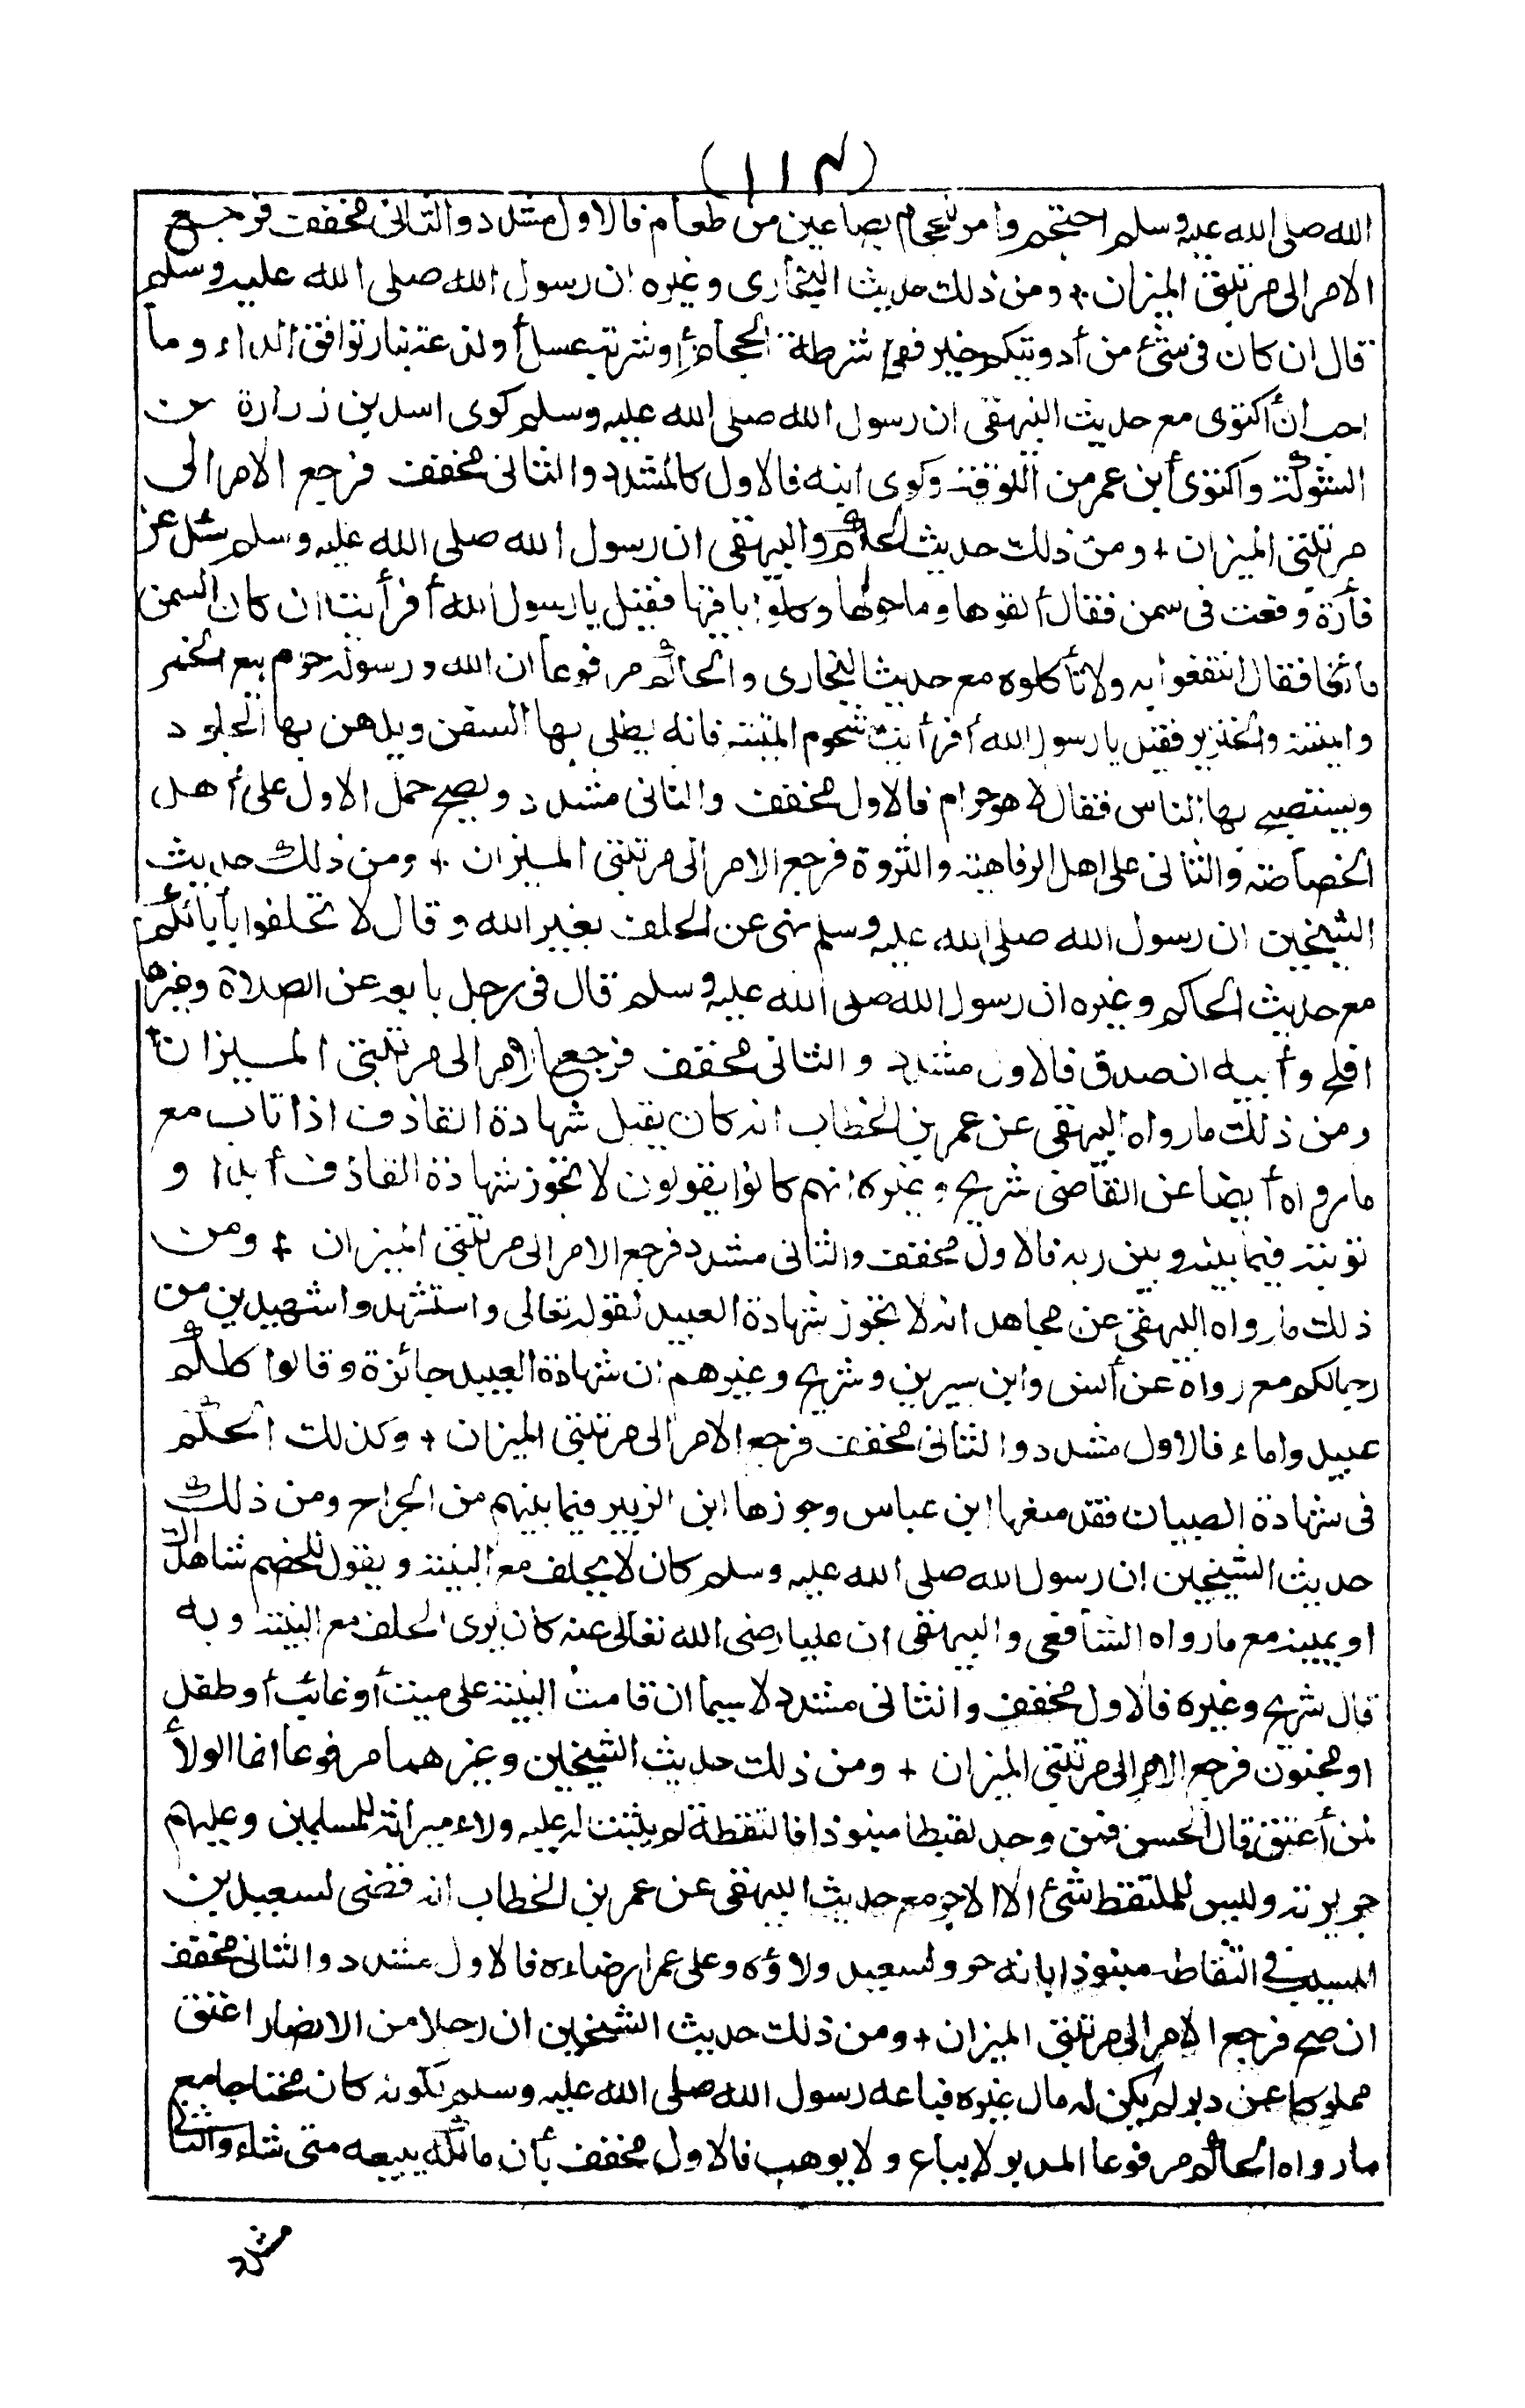 (١١٤)
الله صلى الله عليه وسلم احتجم وامر للحجام بصاعين من طعام فالاول مشدد والثانى مخفف فرجع
الامر الى مرتبتى الميزان + ومن ذلك حديث البخارى وغيره ان رسول الله صلى الله عليه وسلم
قال ان كان فى شئ من أدويتكم خير ففى شرطة الحجام أو شربة عسل أو لذعة بنار توافق الداء وما
احب ان أكتوى مع حديث البيهقى ان رسول الله صلى الله عليه وسلم كوى اسد بن زرارة من
الشوكة واكتوى أبن عمر من اللوقة وكوى ابنه فالاول كالمشدد والثانى مخفف فرجع الامر الى
مرتبتى الميزان + ومن ذلك حديث الحاكم والبيهقى ان رسول الله صلى الله عليه وسلم سئل عن
فأرة وقعت فى سمن فقال ألقوها وما حولها وكلوا باقيها فقيل يا رسول الله أفرأيت ان كان السمن
مائعا فقال انتفعوا به ولا تأكلوه مع حديث البخارى والحاكم مرفوعا ان الله ورسوله حرم بيع الخمر
والميتة والخنزير فقيل يا رسول الله أفرأيت شحوم الميتة فانه يطلى بها السفن ويدهن بها الجلود
ويستصبح بها الناس فقال لا هو حرام فالاول مخفف والثانى مشدد ويصح حمل الاول على أهل
الخصاصة والثانى على اهل الرفاهية والثروة فرجع الامر الى مرتبتى الميزان + ومن ذلك حديث
الشيخين ان رسول الله صلى الله عليه وسلم نهى عن الحلف بغير الله وقال لا تحلفوا بأبائكم
مع حديث الحاكم وغيره ان رسول الله صلى الله عليه وسلم قال فى رجل بايعه عن الصلاة وغيرها
افلح وأبيه ان صدق فالاول مشدد والثانى مخفف فرجع الامر الى مرتبتى الميزان +
ومن ذلك ما رواه البيهقى عن عمر بن الخطاب انه كان يقبل شهادة القاذف اذا تاب مع
ما رواه أيضا عن القاضى شريح وغيره انهم كانوا يقولون لا تجوز شهادة القاذف أبدا و
توبته فيما بينه وبين ربه فالاول مخفف والثانى مشدد فرجع الامر الى مرتبتى الميزان + ومن
ذلك ما رواه البيهقى عن مجاهد انه لا تجوز شهادة العبيد لقوله تعالى واستشهدوا شهيدين من
رجالكم مع رواة عن أنس وابن سيرين وشريح وغيرهم ان شهادة العبيد جائزة وقالوا كلكم
عبيد واماء فالاول مشدد والثانى مخفف فرجع الامر الى مرتبتى الميزان + وكذلك الحكم
فى شهادة الصبيان فقد منعها ابن عباس وجوزها ابن الزبير فيما بينهم من الجراح ومن ذلك
حديث الشيخين ان رسول الله صلى الله عليه وسلم كان لا يحلف مع البينة ويقول للخصم شاهداك
او يمينه مع ما رواه الشافعى والبيهقى ان عليا رضى الله تعالى عنه كان يرى الحلف مع البينة وبه
قال شريح وغيره فالاول مخفف والثانى مشدد لا سيما ان قامت البينة على ميت أو غائب أو طفل
او مجنون فرجع الامر الى مرتبتى الميزان + ومن ذلك حديث الشيخين وغيرهما مرفوعا انما الولأ
لمن أعتق قال الحسن فمن وجد لقيطا منبوذا فالتقطه لم يثبت له عليه ولاء وميراثه للمسلمين وعليهم
جريرته وليس للملتقط شئ الا الاجر مع حديث البيهقى عن عمر بن الخطاب انه قضى لسعيد بن
المسيب فى التقاط منبوذا بانه حر ولسعيد ولاؤه وعلى عمر ارضاعه فالاول مشدد والثانى مخفف
ان صح فرجع الامر الى مرتبتى الميزان + ومن ذلك حديث الشيخين ان رجلا من الانصار اعتق
مملوكا عن دبر لم يكن له مال غيره فباعه رسول الله صلى الله عليه وسلم لكونه كان محتاجا مع
ما رواه الحاكم مرفوعا المدبر لا يباع ولا يوهب فالاول مخفف بأن مالكه يبيعه متى شاء والثانى
مشدد